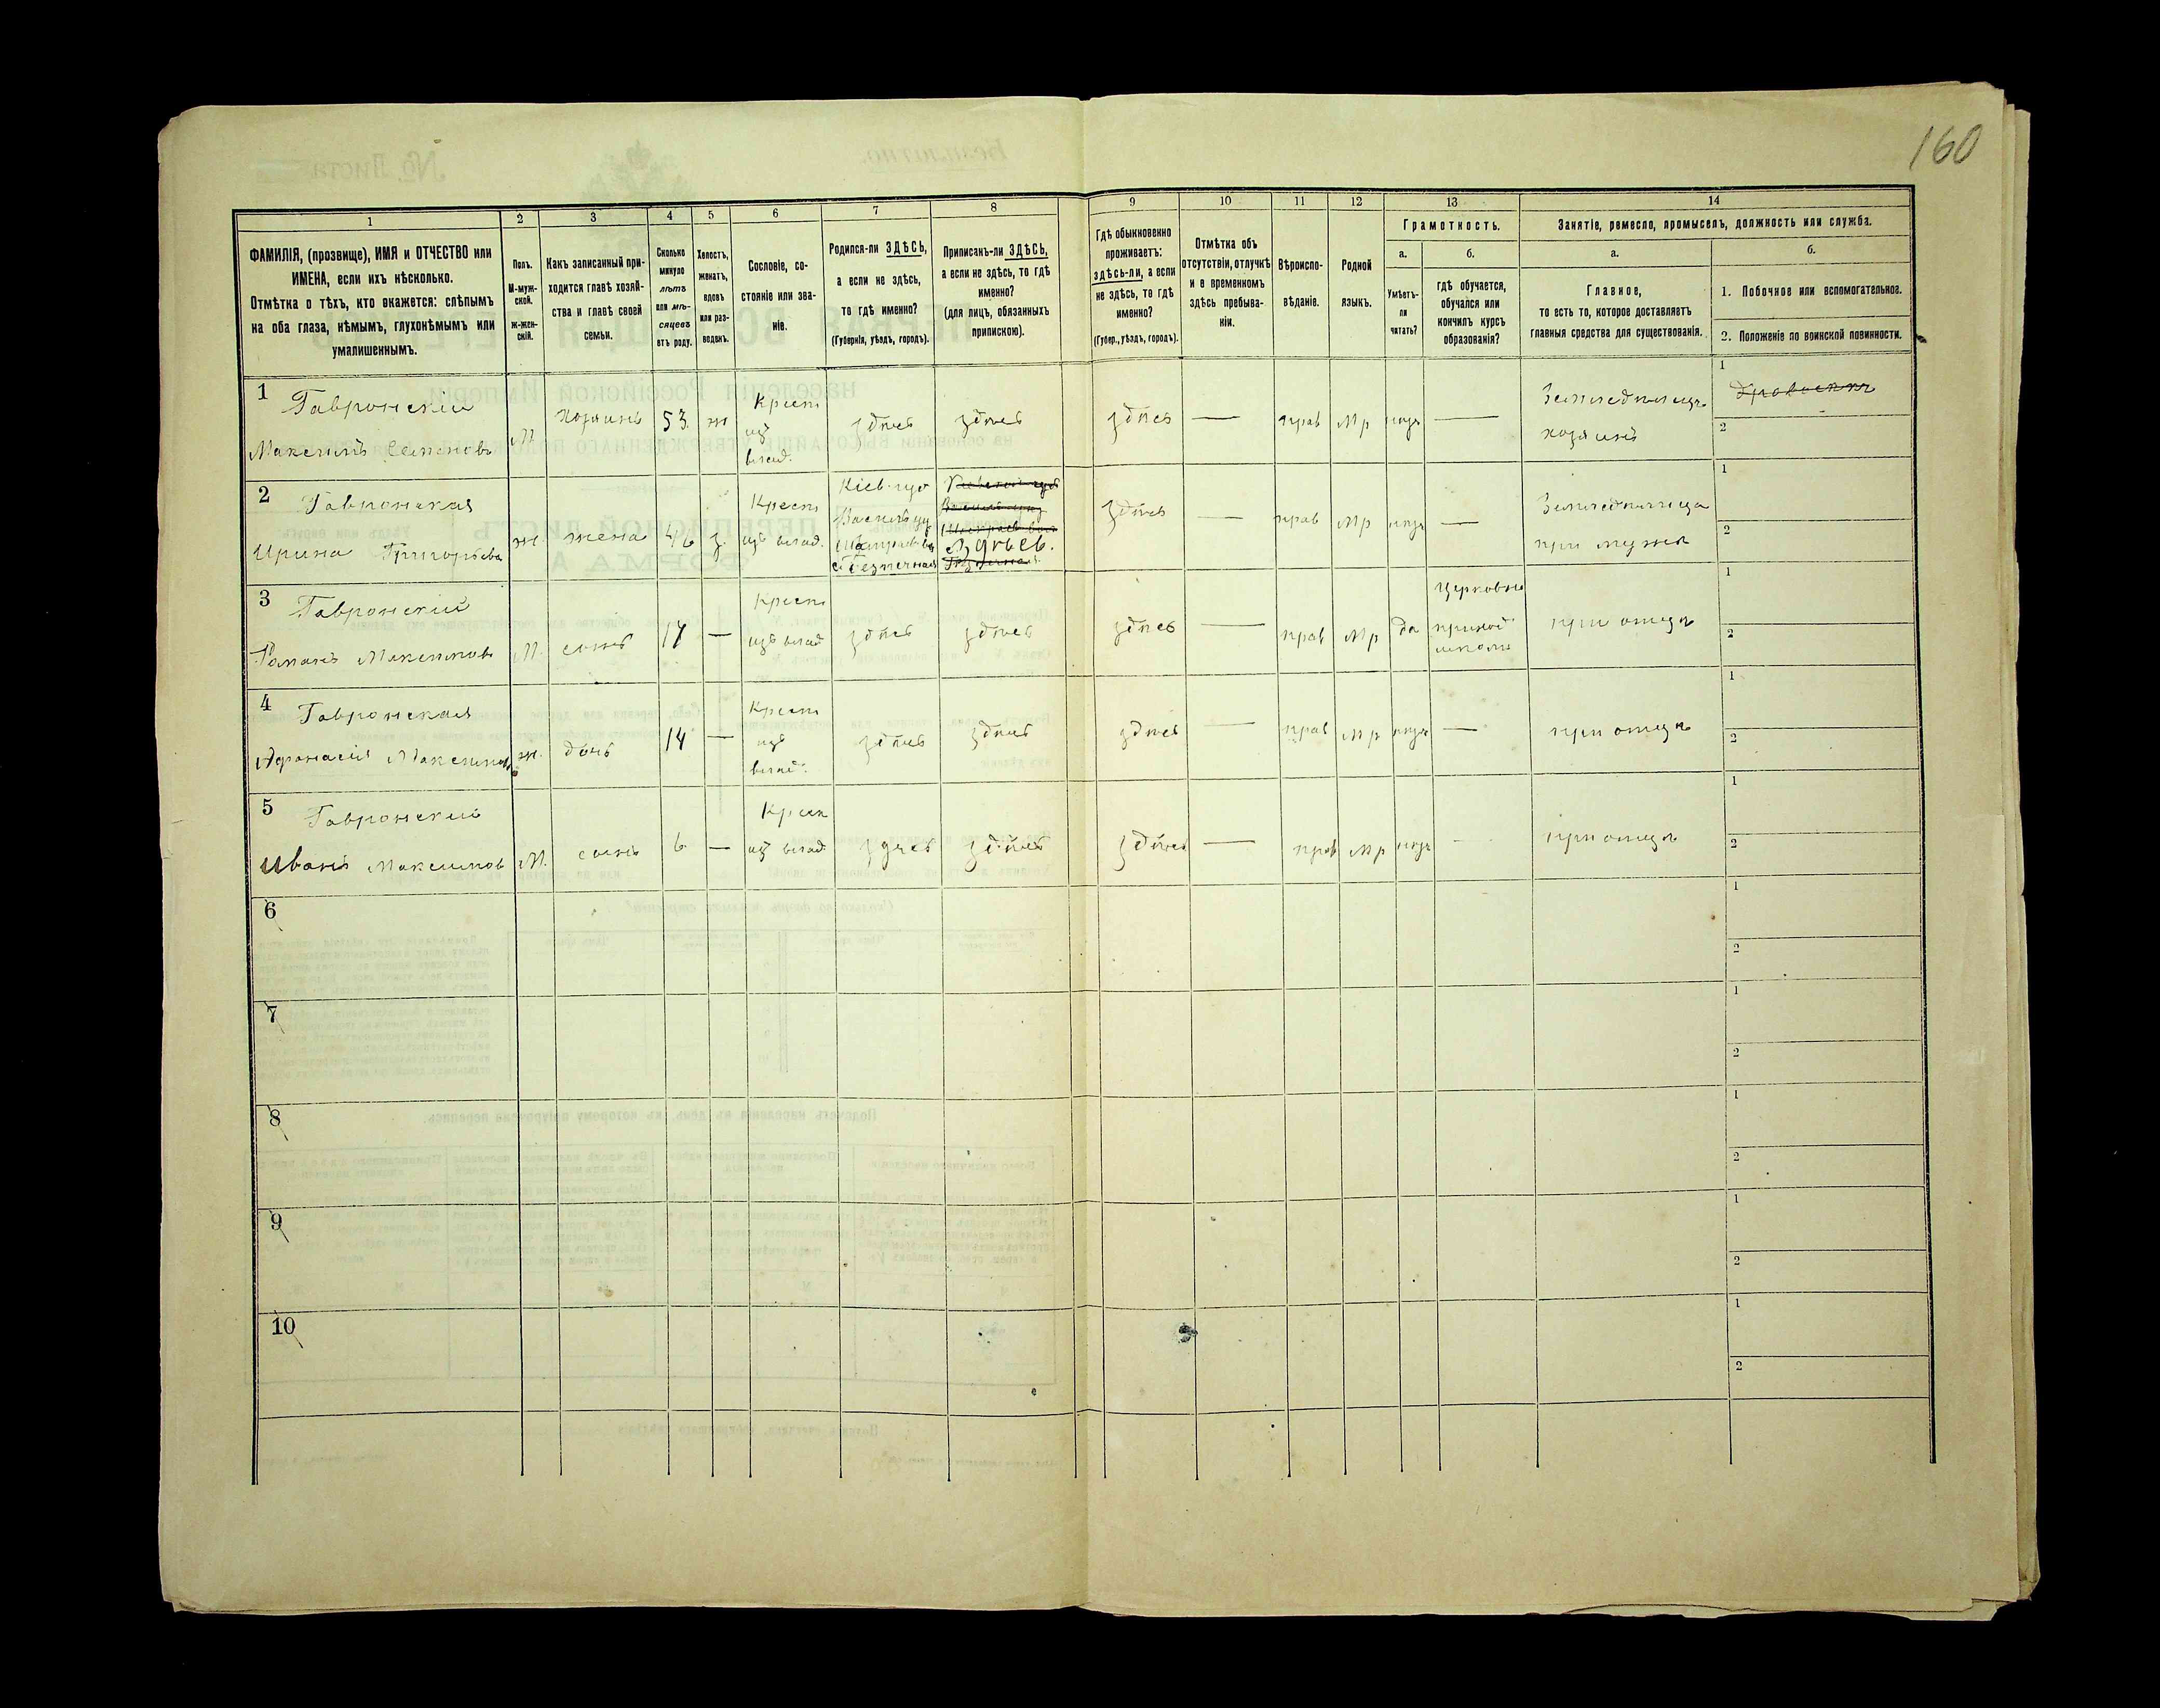 160
1
2
3
4
5
6
7
8
9
10
11
12
13
14
ФАМИЛІЯ, (прозвище), ИМЯ и ОТЧЕСТВО или
ИМЕНА, если ихъ нѣсколько.
Отмѣтка о тѣхъ, кто окажется: слѣпымъ
на оба глаза, нѣмымъ, глухонѣмымъ или
умалишеннымъ.
Полъ.
М-муж-
ской.
Ж-жен-
скій.
Какъ записанный при-
ходится главѣ хозяй-
ства и главѣ своей
семьи.
Сколько
минуло
лѣтъ
или мѣ-
сяцевъ
отъ роду.
Холостъ,
женатъ,
вдовъ
или раз-
веденъ.
Сословіе, со-
стояніе или зва-
ніе.
Родился-ли ЗДѢСЬ,
а если не здѣсь,
то гдѣ именно?
(Губернія, уѣздъ, городъ).
Приписанъ-ли ЗДѢСЬ,
а если не здѣсь, то гдѣ
именно?
(для лицъ, обязанныхъ
припискою).
Гдѣ обыкновенно
проживаетъ:
здѣсь-ли, а если
не здѣсь, то гдѣ
именно?
(Губер., уѣздъ, городъ).
Отмѣтка объ
отсутствіи, отлучкѣ
и о временномъ
здѣсь пребыва-
ніи.
Вѣроиспо-
вѣданіе.
Родной
языкъ.
Грамотность.
а.
б.
Умѣетъ-
ли
читать?
гдѣ обучается,
обучался или
кончилъ курсъ
образованія?
Занятіе, ремесло, промыселъ, должность или служба.
а.
б.
Главное,
то есть то, которое доставляетъ
главныя средства для существованія.
1. Побочное или вспомогательное.
2. Положеніе по воинской повинности.
1
Гавронскій
Максимъ Семеновъ
М
хозяинъ
53.
ж
Крест
изъ
влад.
здѣсь
здѣсь
здѣсь
—
прав
Мр
—
хозяинъ
1
2
2
Гавронская
Ирина Григорьева
ж.
жена
46
з.
Крест
изъ влад.
Кіев. губ
здѣсь.
здѣсь
—
прав
Мр
—
при мужѣ
1
2
3
Гавронскій
Романъ Максимовъ
М.
сынъ
17
—
Крест
изъ влад
здѣсь
здѣсь
здѣсь
—
прав
Мр
да
Церковно
приход
школы
при отцѣ
1
2
4
Гавронская
Афонасія Максимов
ж.
дочь
14
—
Крест
изъ
влад.
здѣсь
здѣсь
здѣсь
—
прав
Мр
—
при отцѣ
1
2
5
Гавронский
Иванъ Максимов
М.
сынъ
6
—
Крест
изъ влад.
здѣсь
здѣсь
здѣсь
—
прав
Мр
-
при отцѣ
1
2
6
1
2
7
1
2
8
1
2
9
1
2
10
1
2